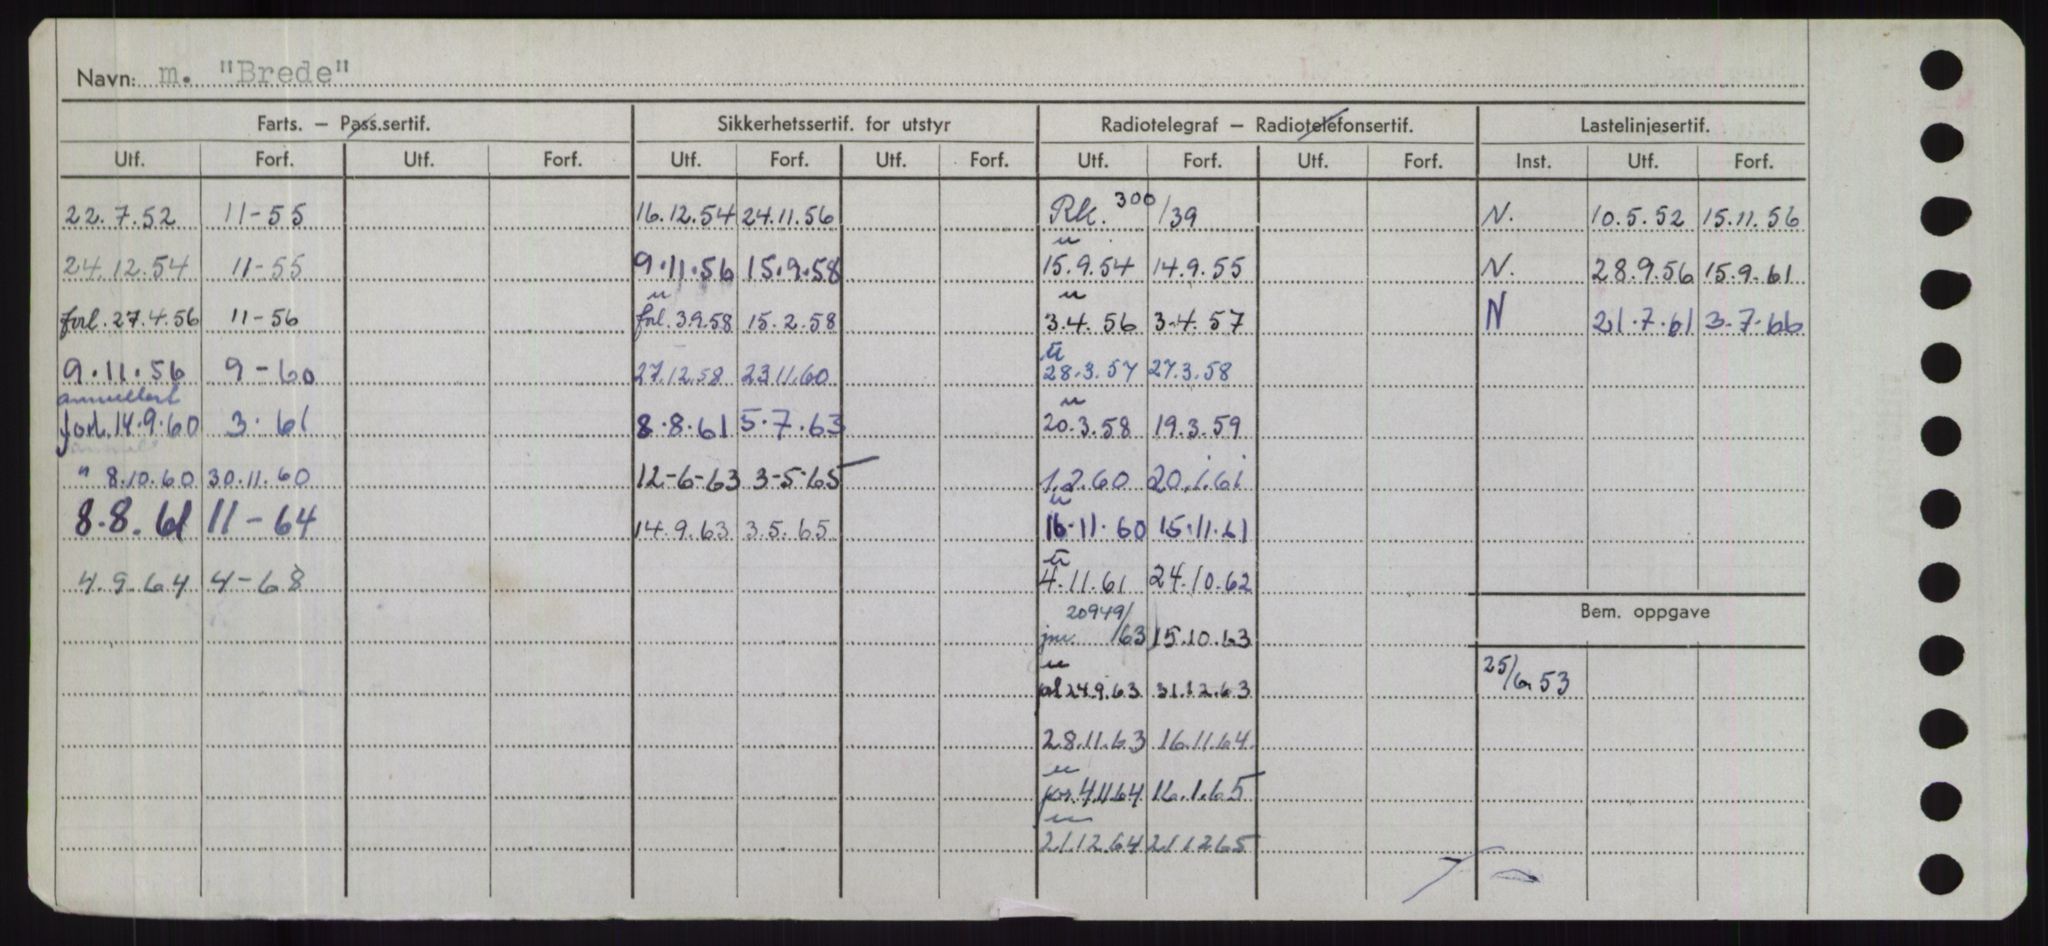 Navn: m. "Brede"
Farts. — Pass.sertif. Sikkerhetssertif. for utstyr Radiotelegraf — Radiotelefonsertif. Lastelinjesertif.
Utf. Forf. Utf. Forf. Utf. Forf. Utf. Forf. Utf. Forf. Utf. Forf. Inst. Utf. Forf.
22.7.52 11-55 16.12.54 24.11.56 Rk. 300/39 N. 10.5.52 15.11.56
u
24.12.54 11-55 9.11.56 15.9.58 15.9.54 14.9.55 N. 28.9.56 15.9.61
u u
forl. 27.4.56 11-56 forl. 3.9.58 15.2.58 3.4.56 3.4.57 N 21.7.61 3.7.66
u
9.11.56 9-60 27.12.58 23.11.60 28.3.57 27.3.58
annullert u
forl. 14.9.60 3.61 8.8.61 5.7.63 20.3.58 19.3.59
" 8.10.60 30.11.60 12-6-63 3-5-65 1.2.60 20.1.61
u
8.8.61 11-64 14.9.63 3.5.65 16.11.60 15.11.61
u
4.9.64 4-68 4.11.61 24.10.62
20949/
jnr. 63 15.10.63 Bem. oppgave
u
24.9.63 31.12.63 25/6 53
28.11.63 16.11.64
u
for. 4.11.64 16.1.65
u
21.12.64 21.12.65